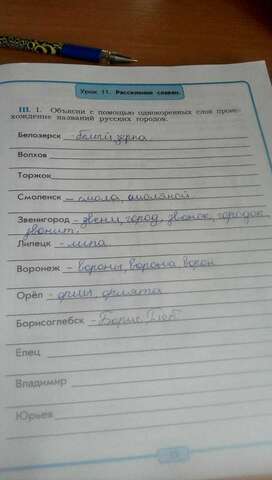 Урок 11. Расселение славян.
III. 1. Объясни с помощью однокоренных слов проис-
хождение названий русских городов.
Белозерск - белый
Волхов
Торжок
Смоленск - смола, смоляной
Звенигород - звени, город, звонок, городок,
звонит.
Липецк - липа
Воронеж - вороны, ворона, ворон
Орёл - орлы, орлята
Борисоглебск - Борис, Глеб
Елец
Владимир
Юрьев